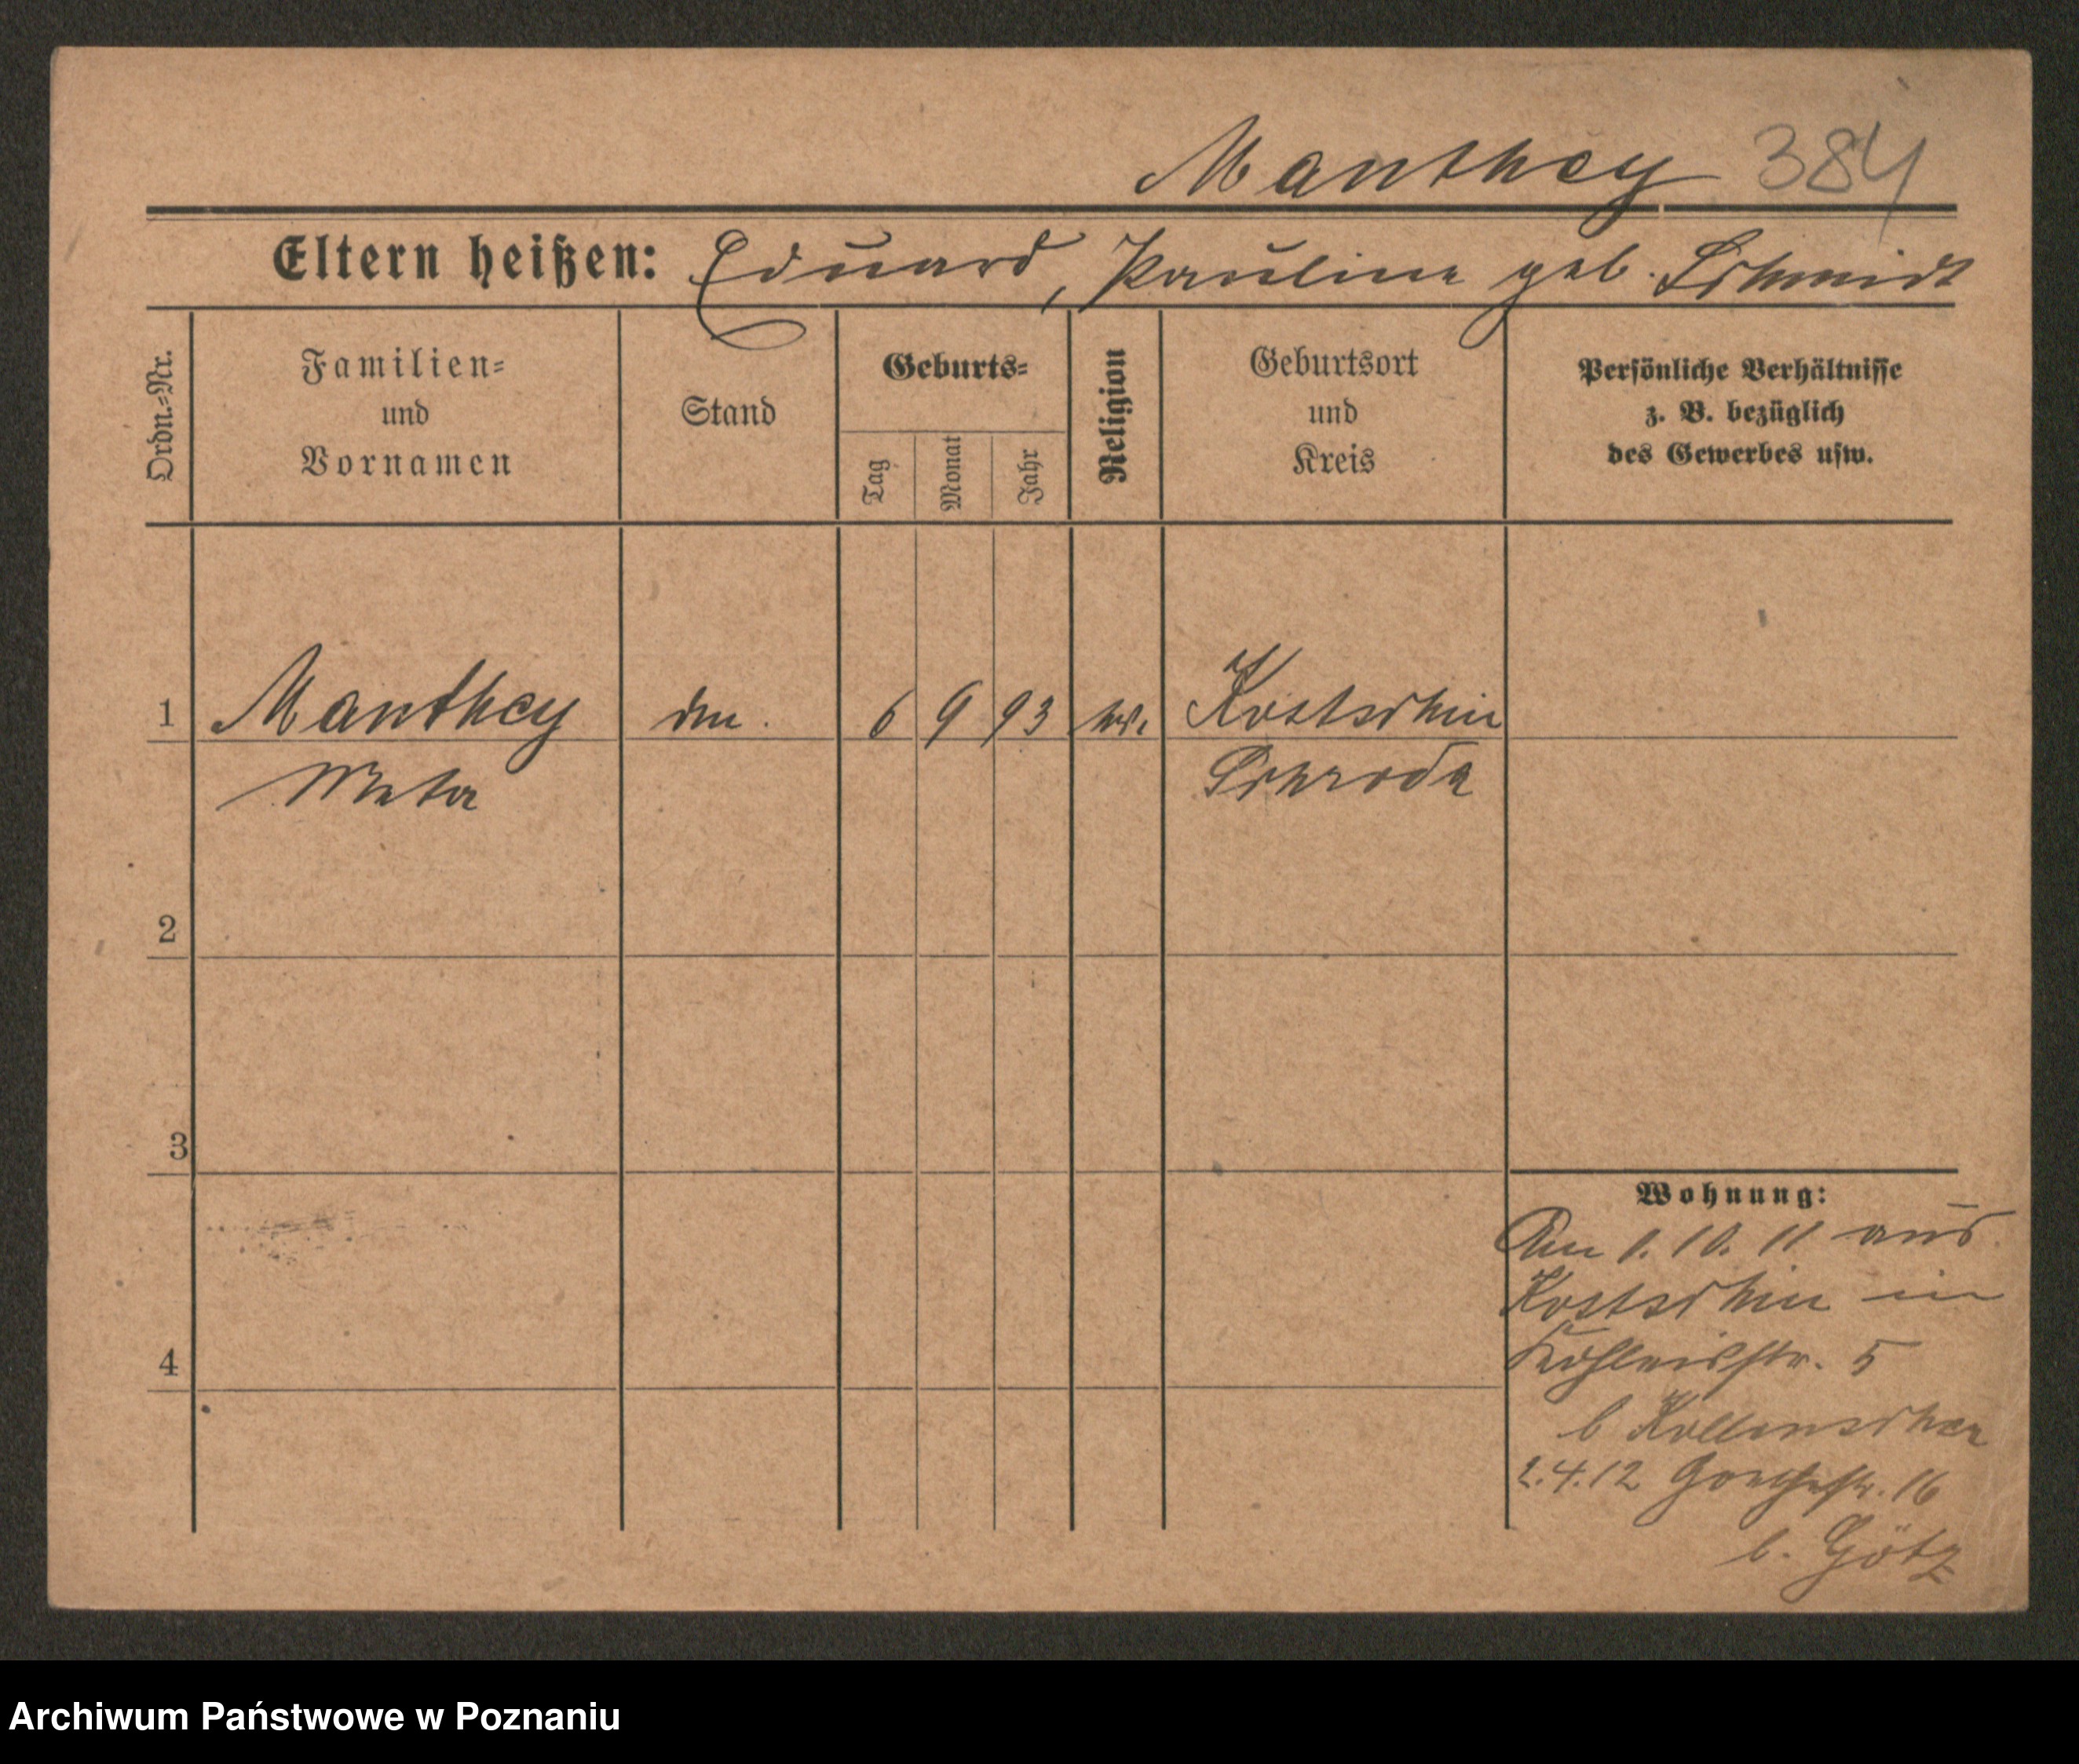 Manthey 384
Eltern heißen: Eduard, Pauline geb. Schmidt
Ordn.-Nr.
Familien-
und
Vornamen
Stand
Geburts-
Tag
Monat
Jahr
Religion
Geburtsort
und
Kreis
Persönliche Verhältnisse
z. B. bezüglich
des Gewerbes usw.
1 Manthey 6 9 93 Kostschin
Meta Schroda
2
3
4
Wohnung:
Am 1. 10. 11 aus
Kostschin in
5
b
2.4.12 Goethestr. 16
b. Götz
Archiwum Państwowe w Poznaniu